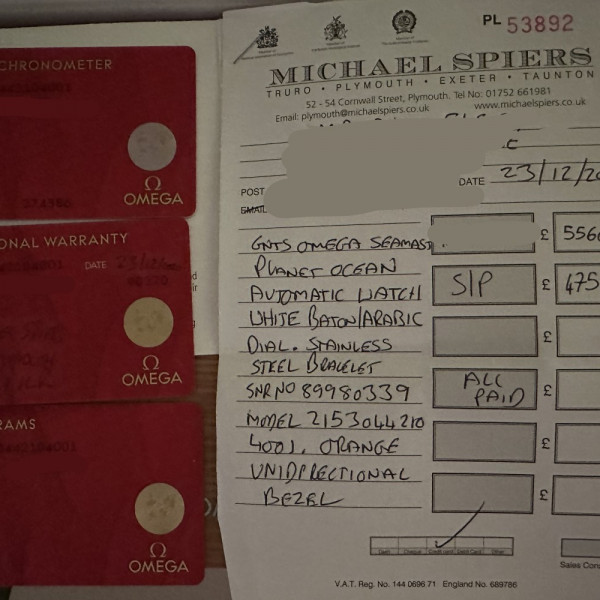 CHRONOMETER
Ω
OMEGA
ONAL WARRANTY
DATE 23/12/
Ω
OMEGA
RAMS
Ω
OMEGA
PL 53892
MICHAEL SPIERS
TRURO • PLYMOUTH • EXETER • TAUNTON
52 - 54 Cornwall Street, Plymouth. Tel No: 01752 661981
Email: plymouth@michaelspiers.co.uk www.michaelspiers.co.uk
POST
DATE 23/12/20
EMAIL
GNTS OMEGA SEAMAST £ 556
PLANET OCEAN
AUTOMATIC WATCH S/P £ 475
WHITE BATON/ARABIC
DIAL. STAINLESS £
STEEL BRACELET
SNR NO 89980339 ALL PAID £
MODEL 2153044210
4001. ORANGE £
UNIDIRECTIONAL
BEZEL £
Cash Cheque Credit card Debit Card Other
Sales Cons
V.A.T. Reg. No. 144 0696 71 England No. 689786